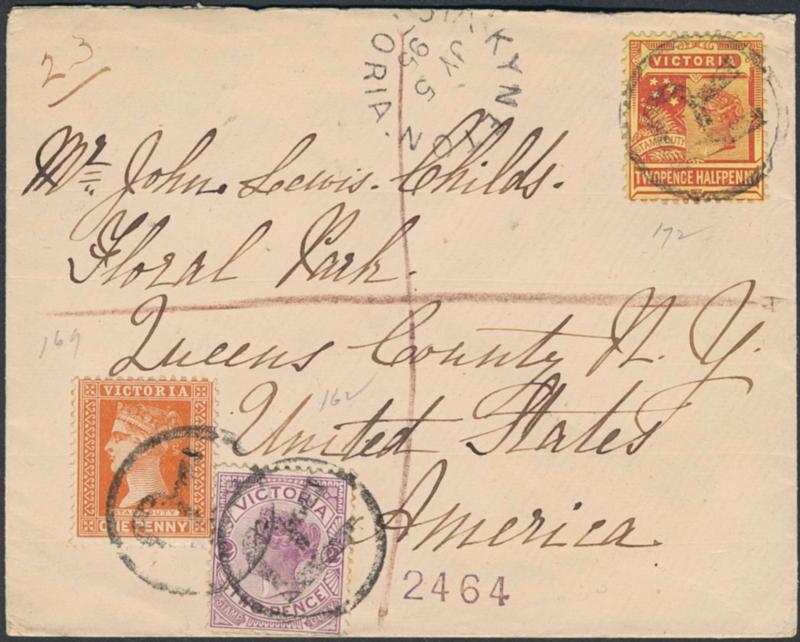 23
KYNETON
JY 5
95
VICTORIA
STAMP DUTY
TWOPENCE HALFPENNY
Mr. John Lewis Childs.
172
Floral Park.
Queens County N. Y.
169
162
United States
America.
VICTORIA
STAMP DUTY
ONE PENNY
VICTORIA
2 2
TWO PENCE
STAMP DUTY
2464